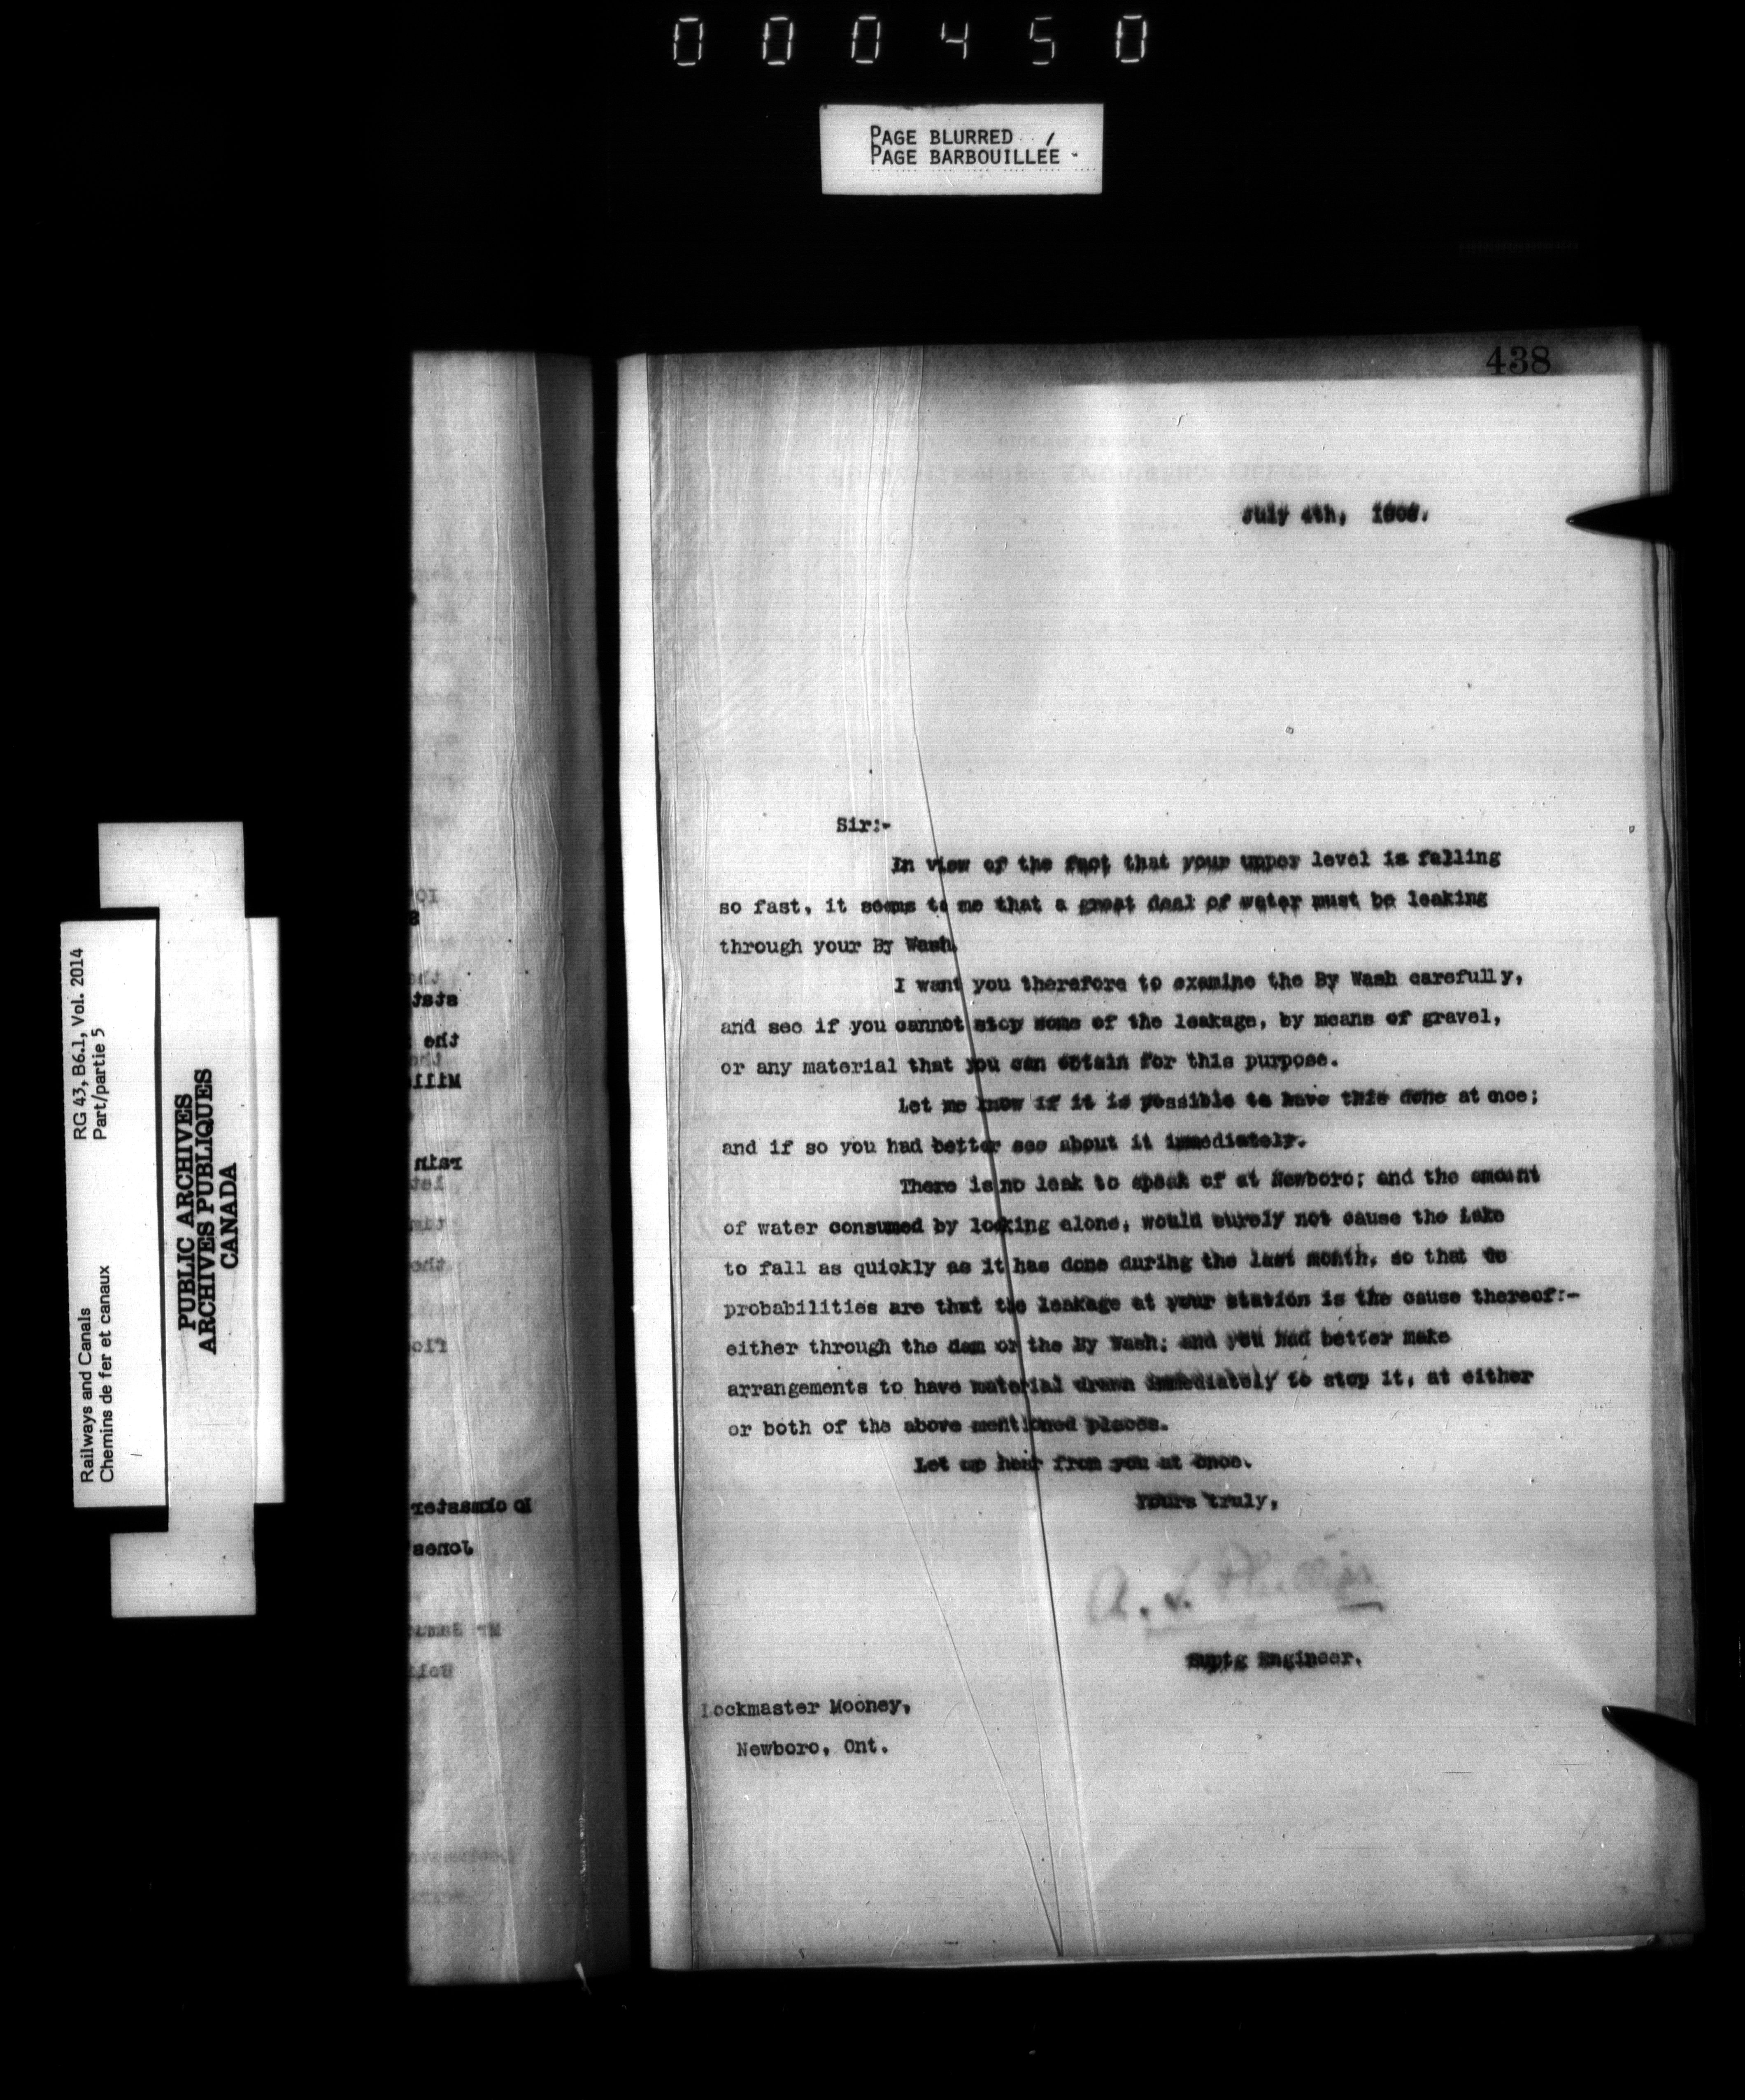 000450
PAGE BLURRED
PAGE BARBOUILLEE
438
July 4th,
Sir:-
In view of the fact that your upper level is falling
so fast, it seems to me that a great deal of water must be leaking
through your By Wash.
I want you therefore to examine the By Wash carefully,
and see if you cannot stop some of the leakage, by means of gravel,
or any material that you can obtain for this purpose.
Let me know if it is possible to have this done at once;
and if so you had better see about it immediately.
There is no leak to speak of at Newboro; and the amount
of water consumed by locking alone, would surely not cause the Lake
to fall as quickly as it has done during the last month, so that
probabilities are that the leakage at your station is the cause thereof:-
either through the dam or the By Wash; and you had better make
arrangements to have material drawn immediately to stop it, at either
or both of the above mentioned places.
Let me hear from you at once.
Yours truly,
A. T. Phillips
Suptg Engineer.
Lockmaster Mooney,
Newboro, Ont.
RG 43, B6.1, Vol. 2014
Part/partie 5
Railways and Canals
Chemins de fer et canaux
PUBLIC ARCHIVES
ARCHIVES PUBLIQUES
CANADA